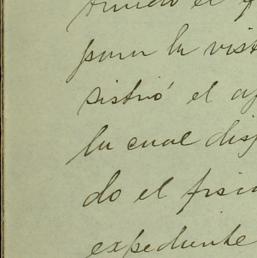 el
para la vist
sistió el a
la cual disp
do el fisc
expediente